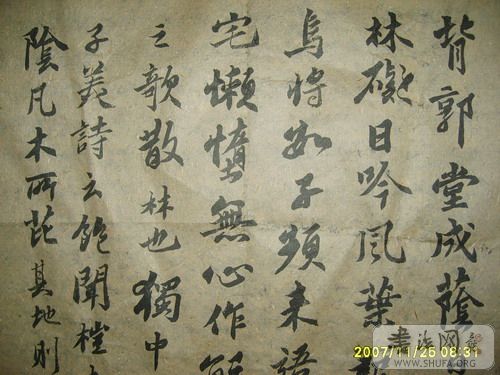 背郭堂成蔭
林礙日吟風葉
烏將數子頻来語
宅懶惰無心作解
之歌散林也獨中
子美詩云飽聞榿
陰凡木所芘其地則
书法网
WWW.SHUFA.ORG
2007/11/25 08:31